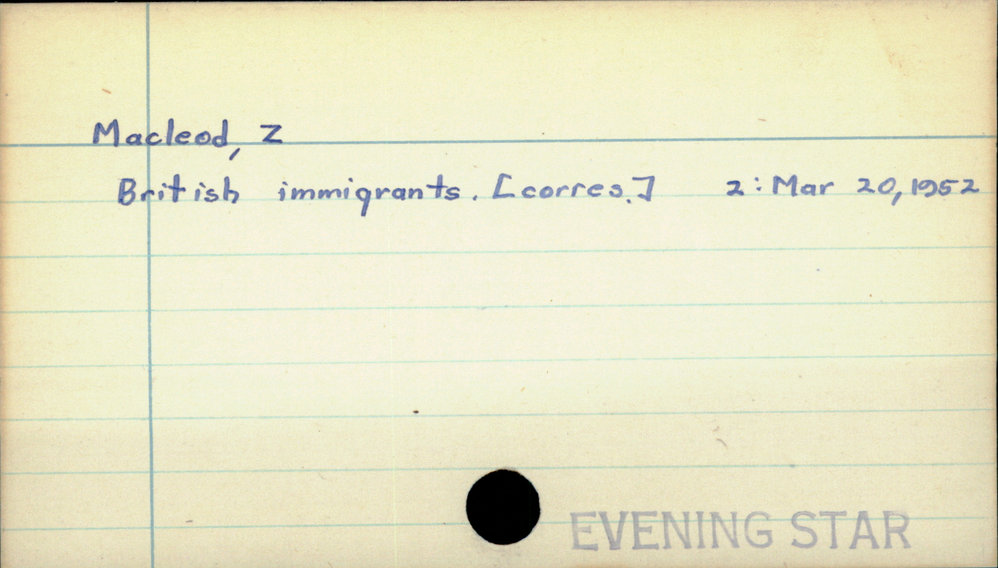 Macleod, Z
British immigrants. [corres.] 2: Mar 20, 1952
EVENING STAR